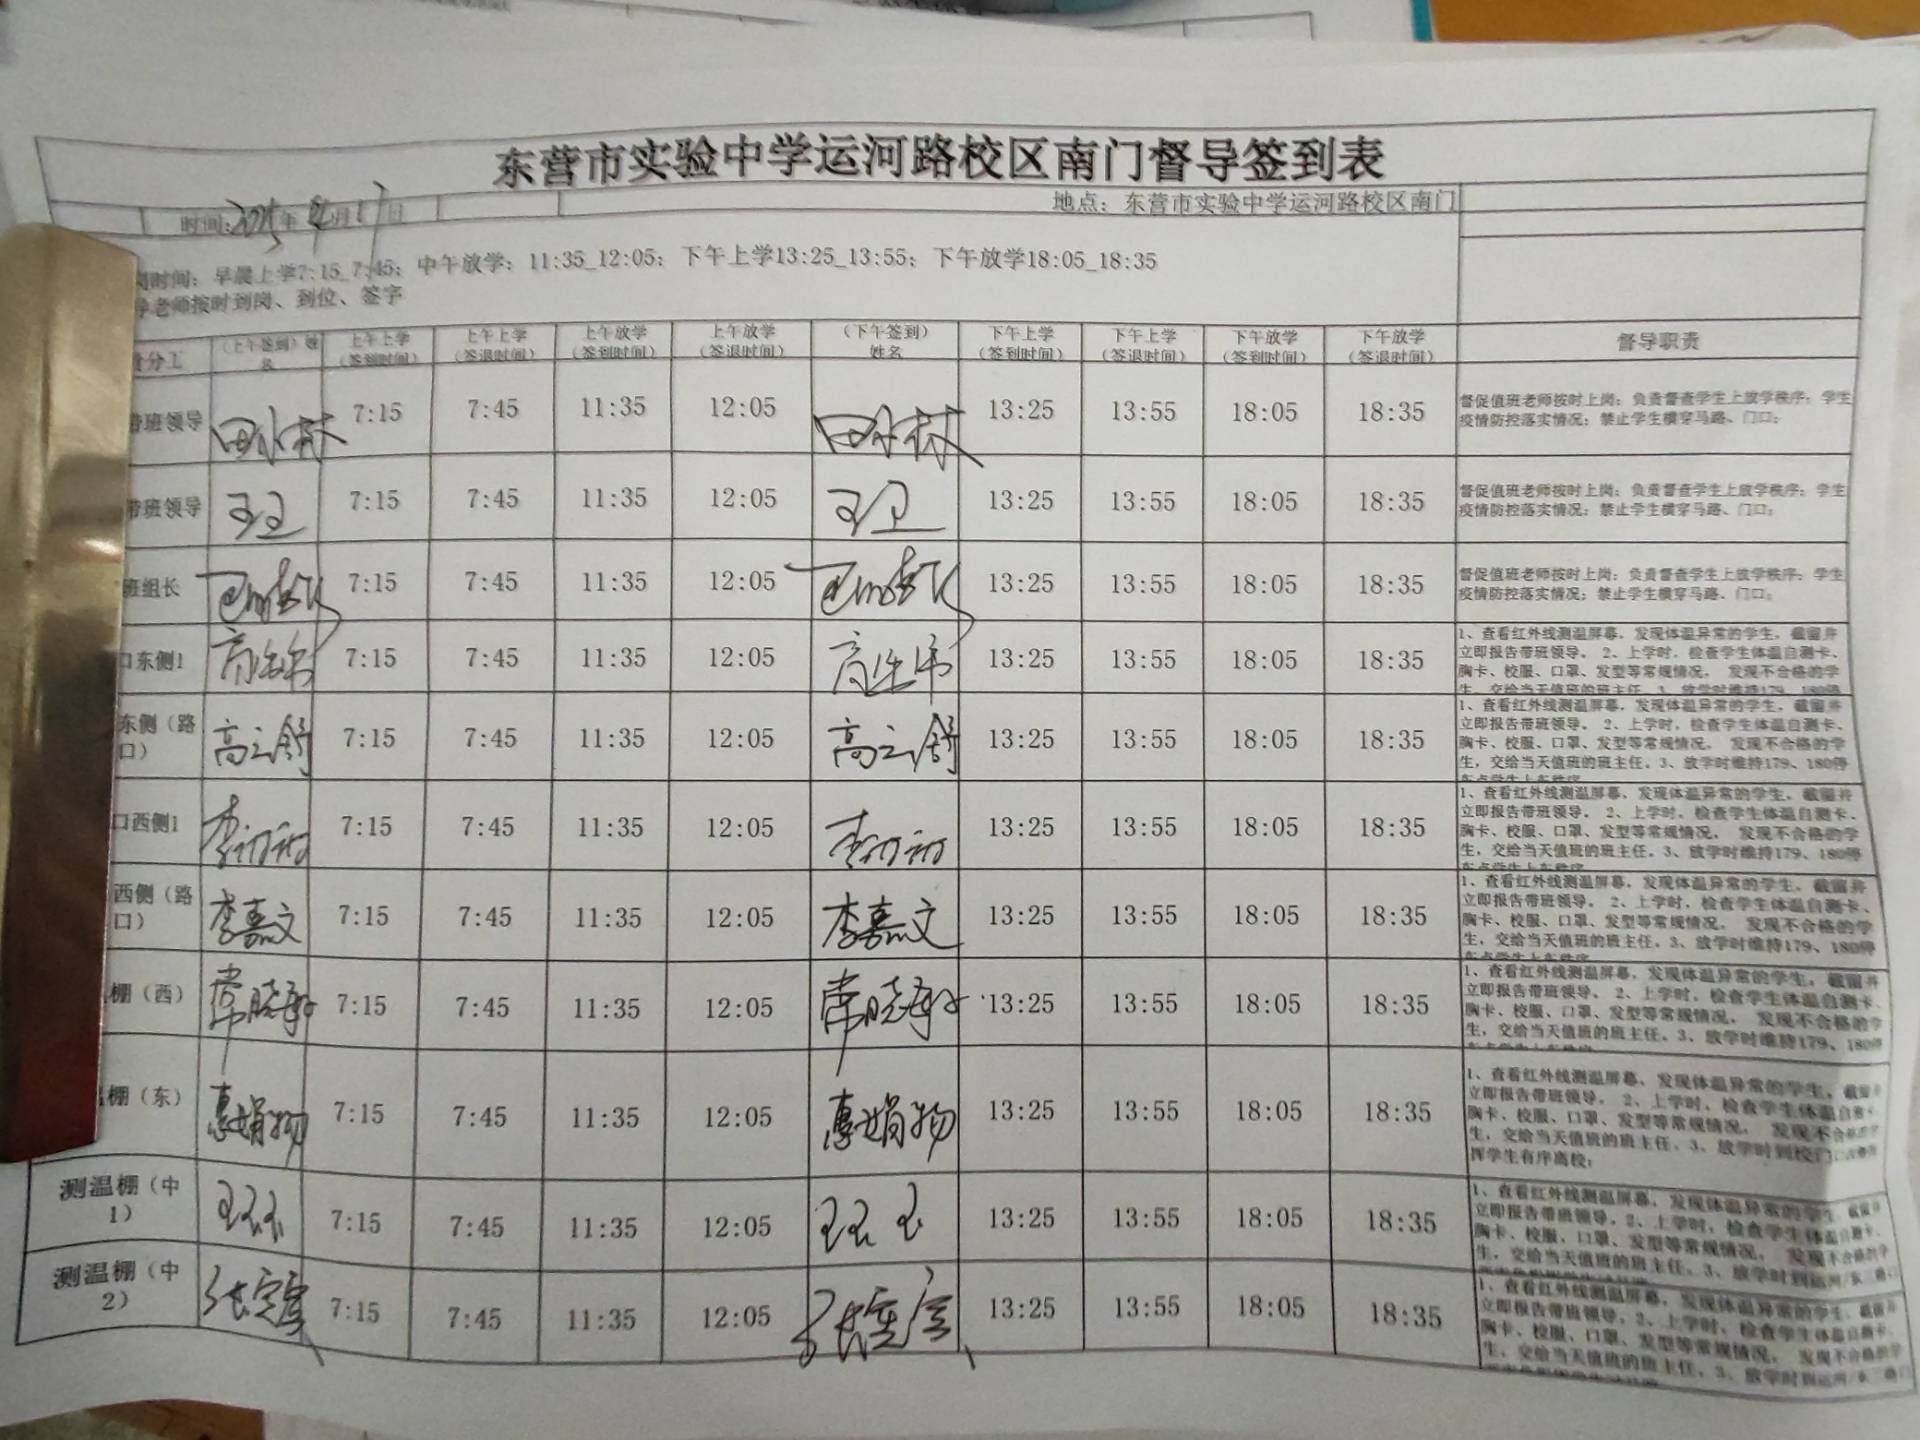 东营市实验中学运河路校区南门督导签到表
时间:2025年4月17日 地点：东营市实验中学运河路校区南门
岗时间：早晨上学7:15_7:45；中午放学：11:35_12:05；下午上学13:25_13:55；下午放学18:05_18:35
导老师按时到岗、到位、签字
分工 （上午签到）姓名 上午上学（签到时间） 上午上学（签退时间） 上午放学（签到时间） 上午放学（签退时间） （下午签到）姓名 下午上学（签到时间） 下午上学（签退时间） 下午放学（签到时间） 下午放学（签退时间） 督导职责
带班领导 7:15 7:45 11:35 12:05 13:25 13:55 18:05 18:35 督促值班老师按时上岗；负责督查学生上放学秩序；学生
疫情防控落实情况；禁止学生横穿马路、门口；
带班领导 王卫 7:15 7:45 11:35 12:05 王卫 13:25 13:55 18:05 18:35 督促值班老师按时上岗；负责督查学生上放学秩序；学生
疫情防控落实情况；禁止学生横穿马路、门口；
班组长 7:15 7:45 11:35 12:05 13:25 13:55 18:05 18:35 督促值班老师按时上岗；负责督查学生上放学秩序；学生
疫情防控落实情况；禁止学生横穿马路、门口；
口东侧1 7:15 7:45 11:35 12:05 13:25 13:55 18:05 18:35 1、查看红外线测温屏幕，发现体温异常的学生，截留并
立即报告带班领导。 2、上学时，检查学生体温自测卡、
胸卡、校服、口罩、发型等常规情况， 发现不合格的学
生，交给当天值班的班主任。3、放学时维持179、180停
东侧（路口） 高云舒 7:15 7:45 11:35 12:05 高云舒 13:25 13:55 18:05 18:35 1、查看红外线测温屏幕，发现体温异常的学生，截留并
立即报告带班领导。 2、上学时，检查学生体温自测卡、
胸卡、校服、口罩、发型等常规情况， 发现不合格的学
生，交给当天值班的班主任。3、放学时维持179、180停
车点学生上车秩序
口西侧1 7:15 7:45 11:35 12:05 13:25 13:55 18:05 18:35 1、查看红外线测温屏幕，发现体温异常的学生，截留并
立即报告带班领导。 2、上学时，检查学生体温自测卡、
胸卡、校服、口罩、发型等常规情况， 发现不合格的学
生，交给当天值班的班主任。3、放学时维持179、180停
车点学生上车秩序
西侧（路口） 李嘉文 7:15 7:45 11:35 12:05 李嘉文 13:25 13:55 18:05 18:35 1、查看红外线测温屏幕，发现体温异常的学生，截留并
立即报告带班领导。 2、上学时，检查学生体温自测卡、
胸卡、校服、口罩、发型等常规情况， 发现不合格的学
生，交给当天值班的班主任。3、放学时维持179、180停
车点学生上车秩序
棚（西） 7:15 7:45 11:35 12:05 13:25 13:55 18:05 18:35 1、查看红外线测温屏幕，发现体温异常的学生，截留并
立即报告带班领导。 2、上学时，检查学生体温自测卡、
胸卡、校服、口罩、发型等常规情况， 发现不合格的学
生，交给当天值班的班主任。3、放学时维持179、180停
车点学生上车秩序
温棚（东） 7:15 7:45 11:35 12:05 13:25 13:55 18:05 18:35 1、查看红外线测温屏幕，发现体温异常的学生，截留并
立即报告带班领导。 2、上学时，检查学生体温自测卡、
胸卡、校服、口罩、发型等常规情况， 发现不合格的学
生，交给当天值班的班主任。3、放学时到校门口
挥学生有序离校；
测温棚（中1） 7:15 7:45 11:35 12:05 13:25 13:55 18:05 18:35 1、查看红外线测温屏幕，发现体温异常的学生，截留并
立即报告带班领导。2、上学时，检查学生体温自测卡、
胸卡、校服、口罩、发型等常规情况， 发现不合格的学
生，交给当天值班的班主任。3、放学时到运河
测温棚（中2） 7:15 7:45 11:35 12:05 13:25 13:55 18:05 18:35 1、查看红外线测温屏幕，发现体温异常的学生，截留并
立即报告带班领导。2、上学时，检查学生体温自测卡、
胸卡、校服、口罩、发型等常规情况， 发现不合格的学
生，交给当天值班的班主任。3、放学时到运河